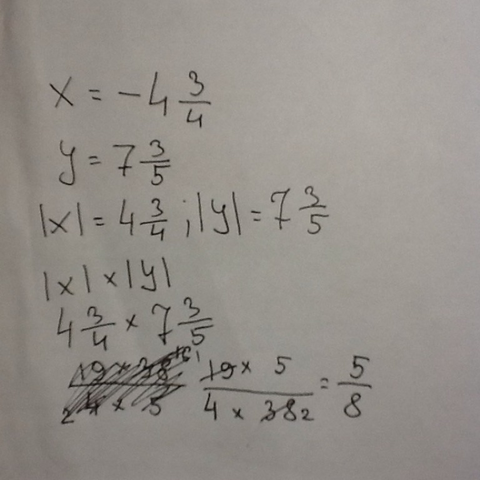 x = -4 3/4
y = 7 3/5
|x| = 4 3/4 ; |y| = 7 3/5
|x| × |y|
4 3/4 × 7 3/5
(19 × 5)/(4 × 38 2) = 5/8